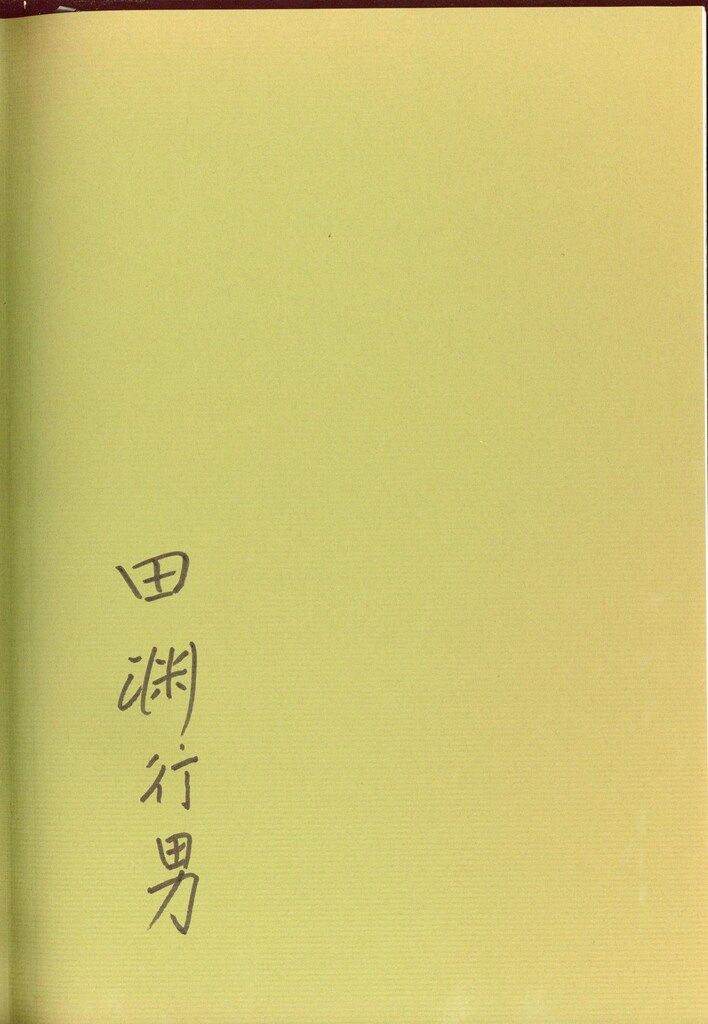 田淵行男